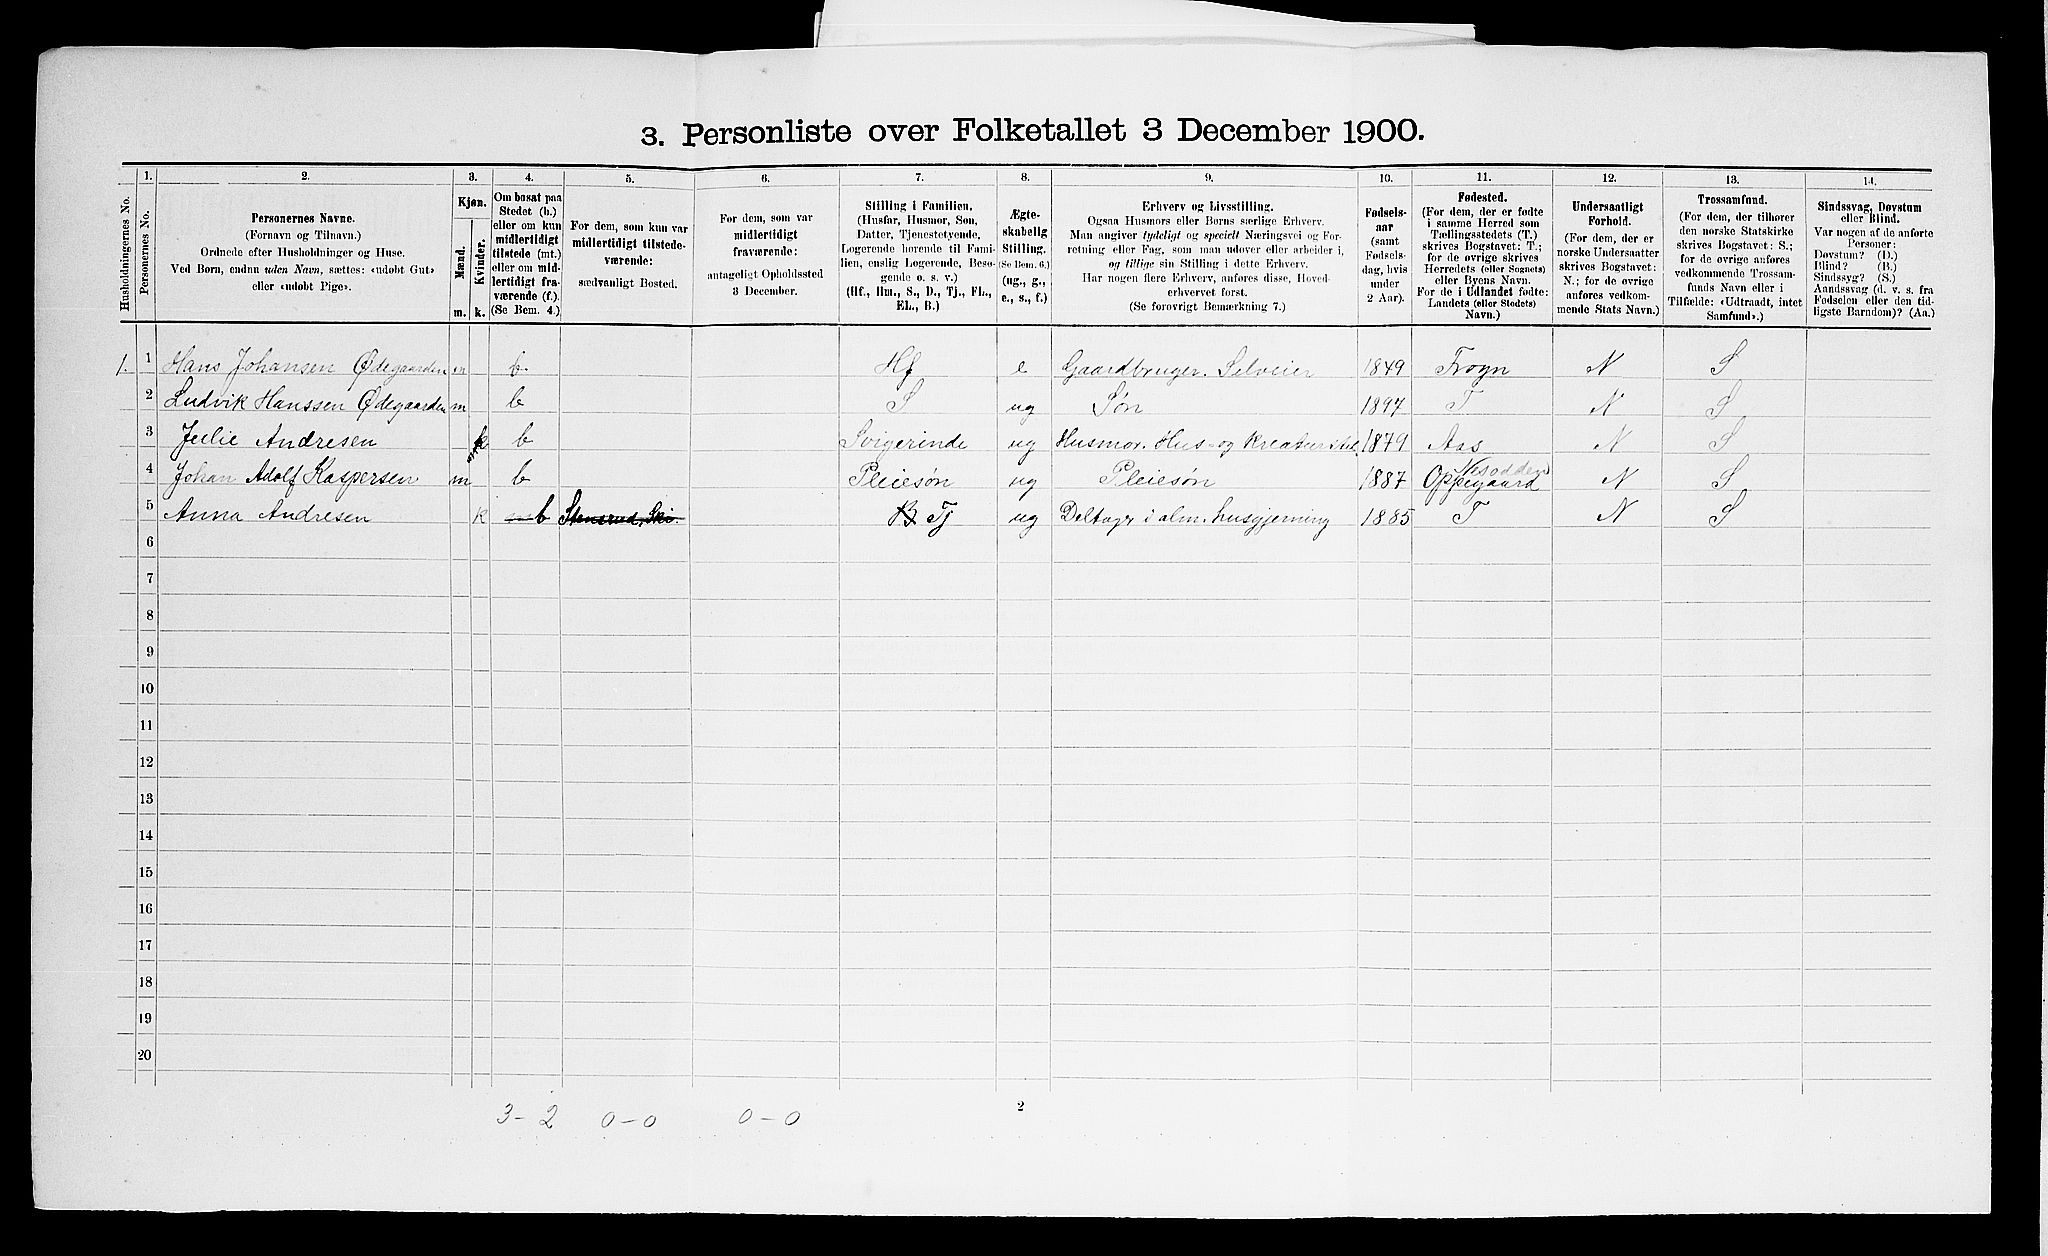 3. Personliste over Folketallet 3 December 1900.
1. 2. 3. 4. 5. 6. 7. 8. 9. 10. 11. 12. 13. 14.
Husholdningernes No.
Personernes No.
Personernes Navne.
(Fornavn og Tilnavn.)
Ordnede efter Husholdninger og Huse.
Ved Børn, endnu uden Navn, sættes: «udøbt Gut»
eller «udøbt Pige».
Kjøn.
Mænd.
Kvinder.
m. k.
Om bosat paa
Stedet (b.)
eller om kun
midlertidigt
tilstede (mt.)
eller om mid-
lertidigt fra-
værende (f.).
(Se Bem. 4.)
For dem, som kun var
midlertidigt tilstede-
værende:
sædvanligt Bosted.
For dem, som var
midlertidigt
fraværende:
antageligt Opholdssted
3 December.
Stilling i Familien.
(Husfar, Husmor, Søn,
Datter, Tjenestetyende,
Logerende hørende til Fami-
lien, enslig Logerende, Besø-
gende o. s. v.)
(Hf., Hm., S., D., Tj., FL.,
EL., B.)
Ægte-
skabelig
Stilling.
(Se Bem. 6.)
(ug., g.,
e., s., f.)
Erhverv og Livsstilling.
Ogsaa Husmors eller Børns særlige Erhverv.
Man angiver tydeligt og specielt Næringsvei og For-
retning eller Fag, som man udøver eller arbeider i,
og tillige sin Stilling i dette Erhverv.
Har nogen flere Erhverv, anføres disse, Hoved-
erhvervet først.
(Se forøvrigt Bemærkning 7.)
Fødsels-
aar
(samt
Fødsels-
dag, hvis
under
2 Aar).
Fødested.
(For dem, der er fødte
i samme Herred som
Tællingsstedets (T.)
skrives Bogstavet: T.;
for de øvrige skrives
Herredets (eller Sognets)
eller Byens Navn.
For de i Udlandet fødte:
Landets (eller Stedets)
Navn.)
Undersaatligt
Forhold.
(For dem, der er
norske Undersaatter
skrives Bogstavet:
N.; for de øvrige
anføres vedkom-
mende Stats Navn.)
Trossamfund.
(For dem, der tilhører
den norske Statskirke
skrives Bogstavet: S.;
for de øvrige anføres
vedkommende Trossam-
funds Navn eller i
Tilfælde: «Udtraadt, intet
Samfund».)
Sindssvag, Døvstum
eller Blind.
Var nogen af de anførte
Personer:
Døvstum? (D.)
Blind? (B.)
Sindssyg? (S.)
Aandssvag (d. v. s. fra
Fødselen eller den tid-
ligste Barndom)? (Aa.)
1. 1 Hans Johansen Ødegaarden m b. Hf e Gaardbruger. Selveier 1849 Frogn N S
2 Ludvik Hanssen Ødegaarden m b S ug Søn 1897 T N S
3 Julie Andresen k b Svigerinde ug Husmor. Hus- og Kreaturstel. 1879 Aas N S
4 Johan Adolf Kaspersen m b Pleiesøn ug Pleiesøn 1887 Oppegaard Nesodden N S
5 Anna Andresen k b Stensrud, Ski. B Tj ug Deltager i alm. husgjerning 1885 T N S
6
7
8
9
10
11
12
13
14
15
16
17
18
19
20
3-2 0-0 0-0 2